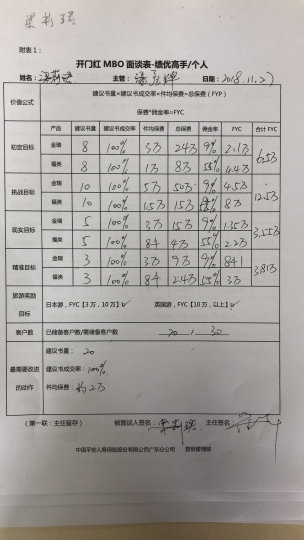 梁莉珺
附表1：
开门红MBO面谈表-绩优高手/个人
姓名： 主管： 日期：2018.11.27
价值公式 建议书量×建议书成交率×件均保费=总保费（FYP）
保费*佣金率=FYC
产品 建议书量 建议书成交率 件均保费 总保费 佣金率 FYC 合计FYC
初定目标 金瑞 8 100% 3万 24万 9% 2.1万 6.5万
福英 8 100% 1万 8万 55% 4.4万
挑战目标 金瑞 10 100% 5万 50万 9% 4.5万 12.5万
福英 10 100% 1.5万 15万 8万
现实目标 金瑞 5 100% 3万 15万 9% 1.35万 3.55万
福英 5 100% 8千 4万 55% 2.2万
精准目标 金瑞 3 100% 3万 9万 9% 3.81万
福英 3 100% 8千 2.4万 55% 3万
旅游奖励目标 日本游，FYC【3万，10万】 英国游，FYC【10万，以上】
客户数 已储备客户数/需储备客户数 20 / 30
最需要改进的动作 建议书量：20
建议书成交率：100%
件均保费：约2万
（第一联：主任留存） 被面谈人签名： 主任签名：
中国平安人寿保险股份有限公司广东分公司 营销管理部